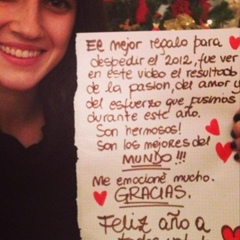 El mejor regalo para
despedir el 2012, fue ver
en este video el resultado
de la pasión, del amor y
del esfuerzo que pusimos
durante este año.
Son hermosos!
Son los mejores del
MUNDO!!!
Me emocioné mucho.
GRACIAS.
Feliz año a